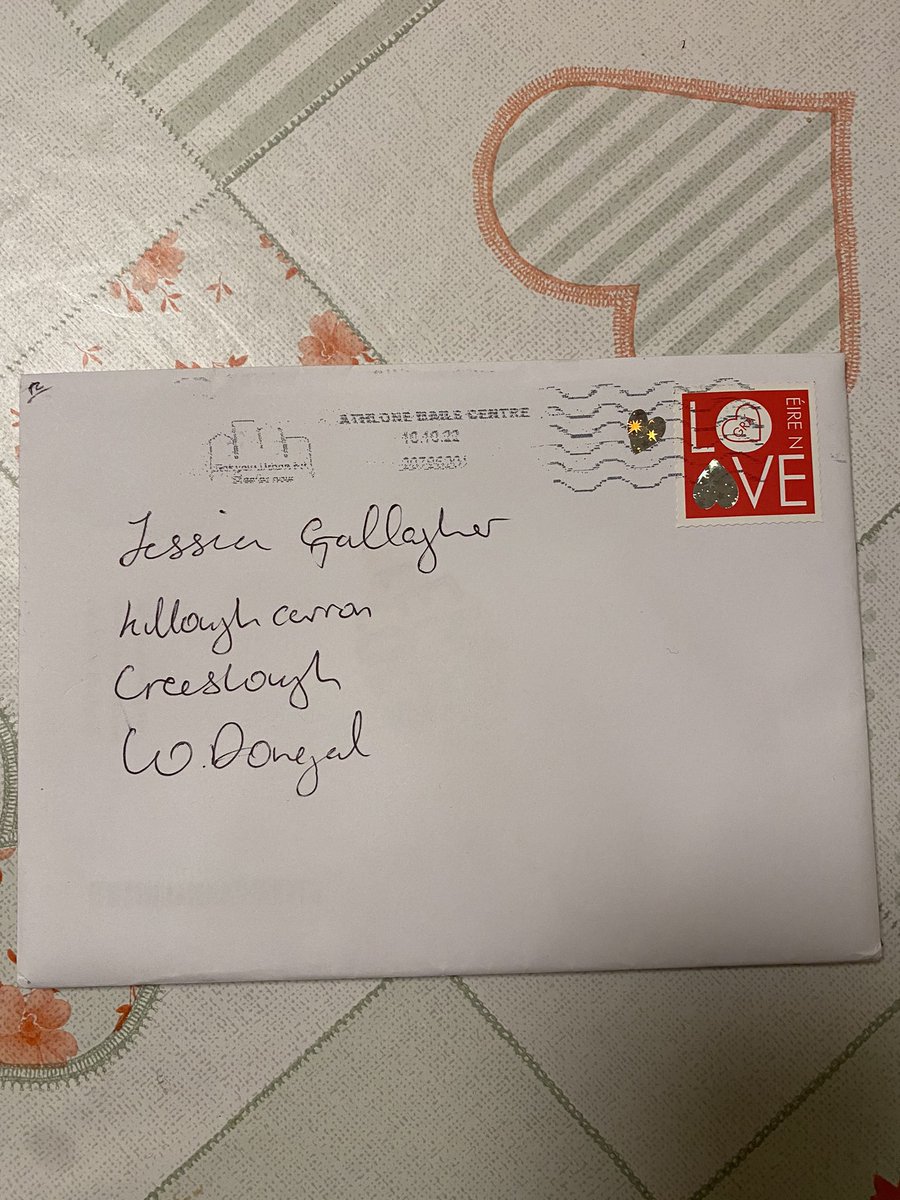 ATHLONE MAILS CENTRE
10.10.22
ÉIRE N
LOVE
Jessica Gallagher
Killoughcarron
Creeslough
CO. Donegal